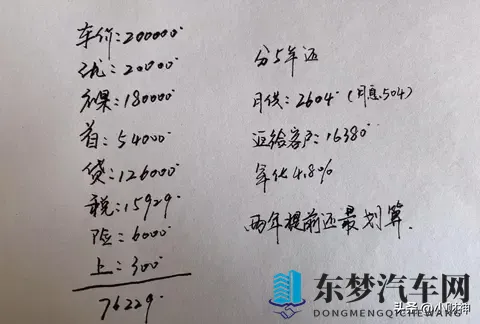 车价:200000
优:20000
裸:180000
首:54000
贷:126000
税:15929
险:6000
上:300
76229
分5年还
月供:2604 (月息.504)
返给客户:16380
年化4.8%
两年提前还最划算.
东梦汽车网
DONGMENGQICHEWANG
头条